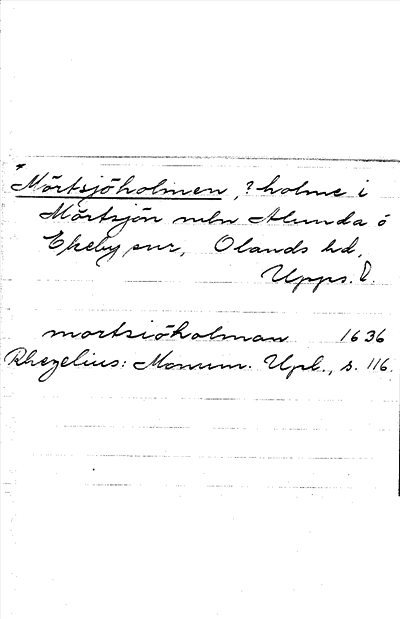 *Mörtsjöholmen, ? holme i
Mörtsjön mln Alunda o
Ekeby snr, Olands hd,
Upps. l.
mortsiöholman 1636
Rhezelius: Monum. Upl., s. 116.